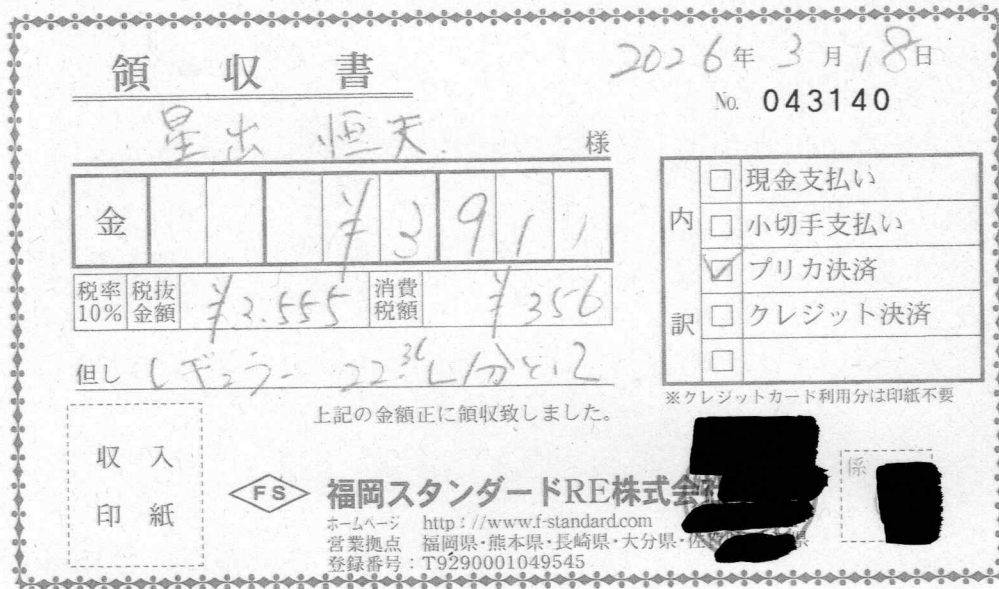 領 収 書
2026年 3月18日
No. 043140
星出 恒天 様
金 ¥3911
税率10% 税抜金額 ¥3.555 消費税額 ¥356
但し レギュラー 22.36L分として
上記の金額正に領収致しました。
内訳
□ 現金支払い
□ 小切手支払い
☑ プリカ決済
□ クレジット決済
□
※クレジットカード利用分は印紙不要
収入
印紙
係
FS 福岡スタンダードRE株式会社
ホームページ http://www.f-standard.com
営業拠点 福岡県・熊本県・長崎県・大分県・佐
登録番号:T9290001049545